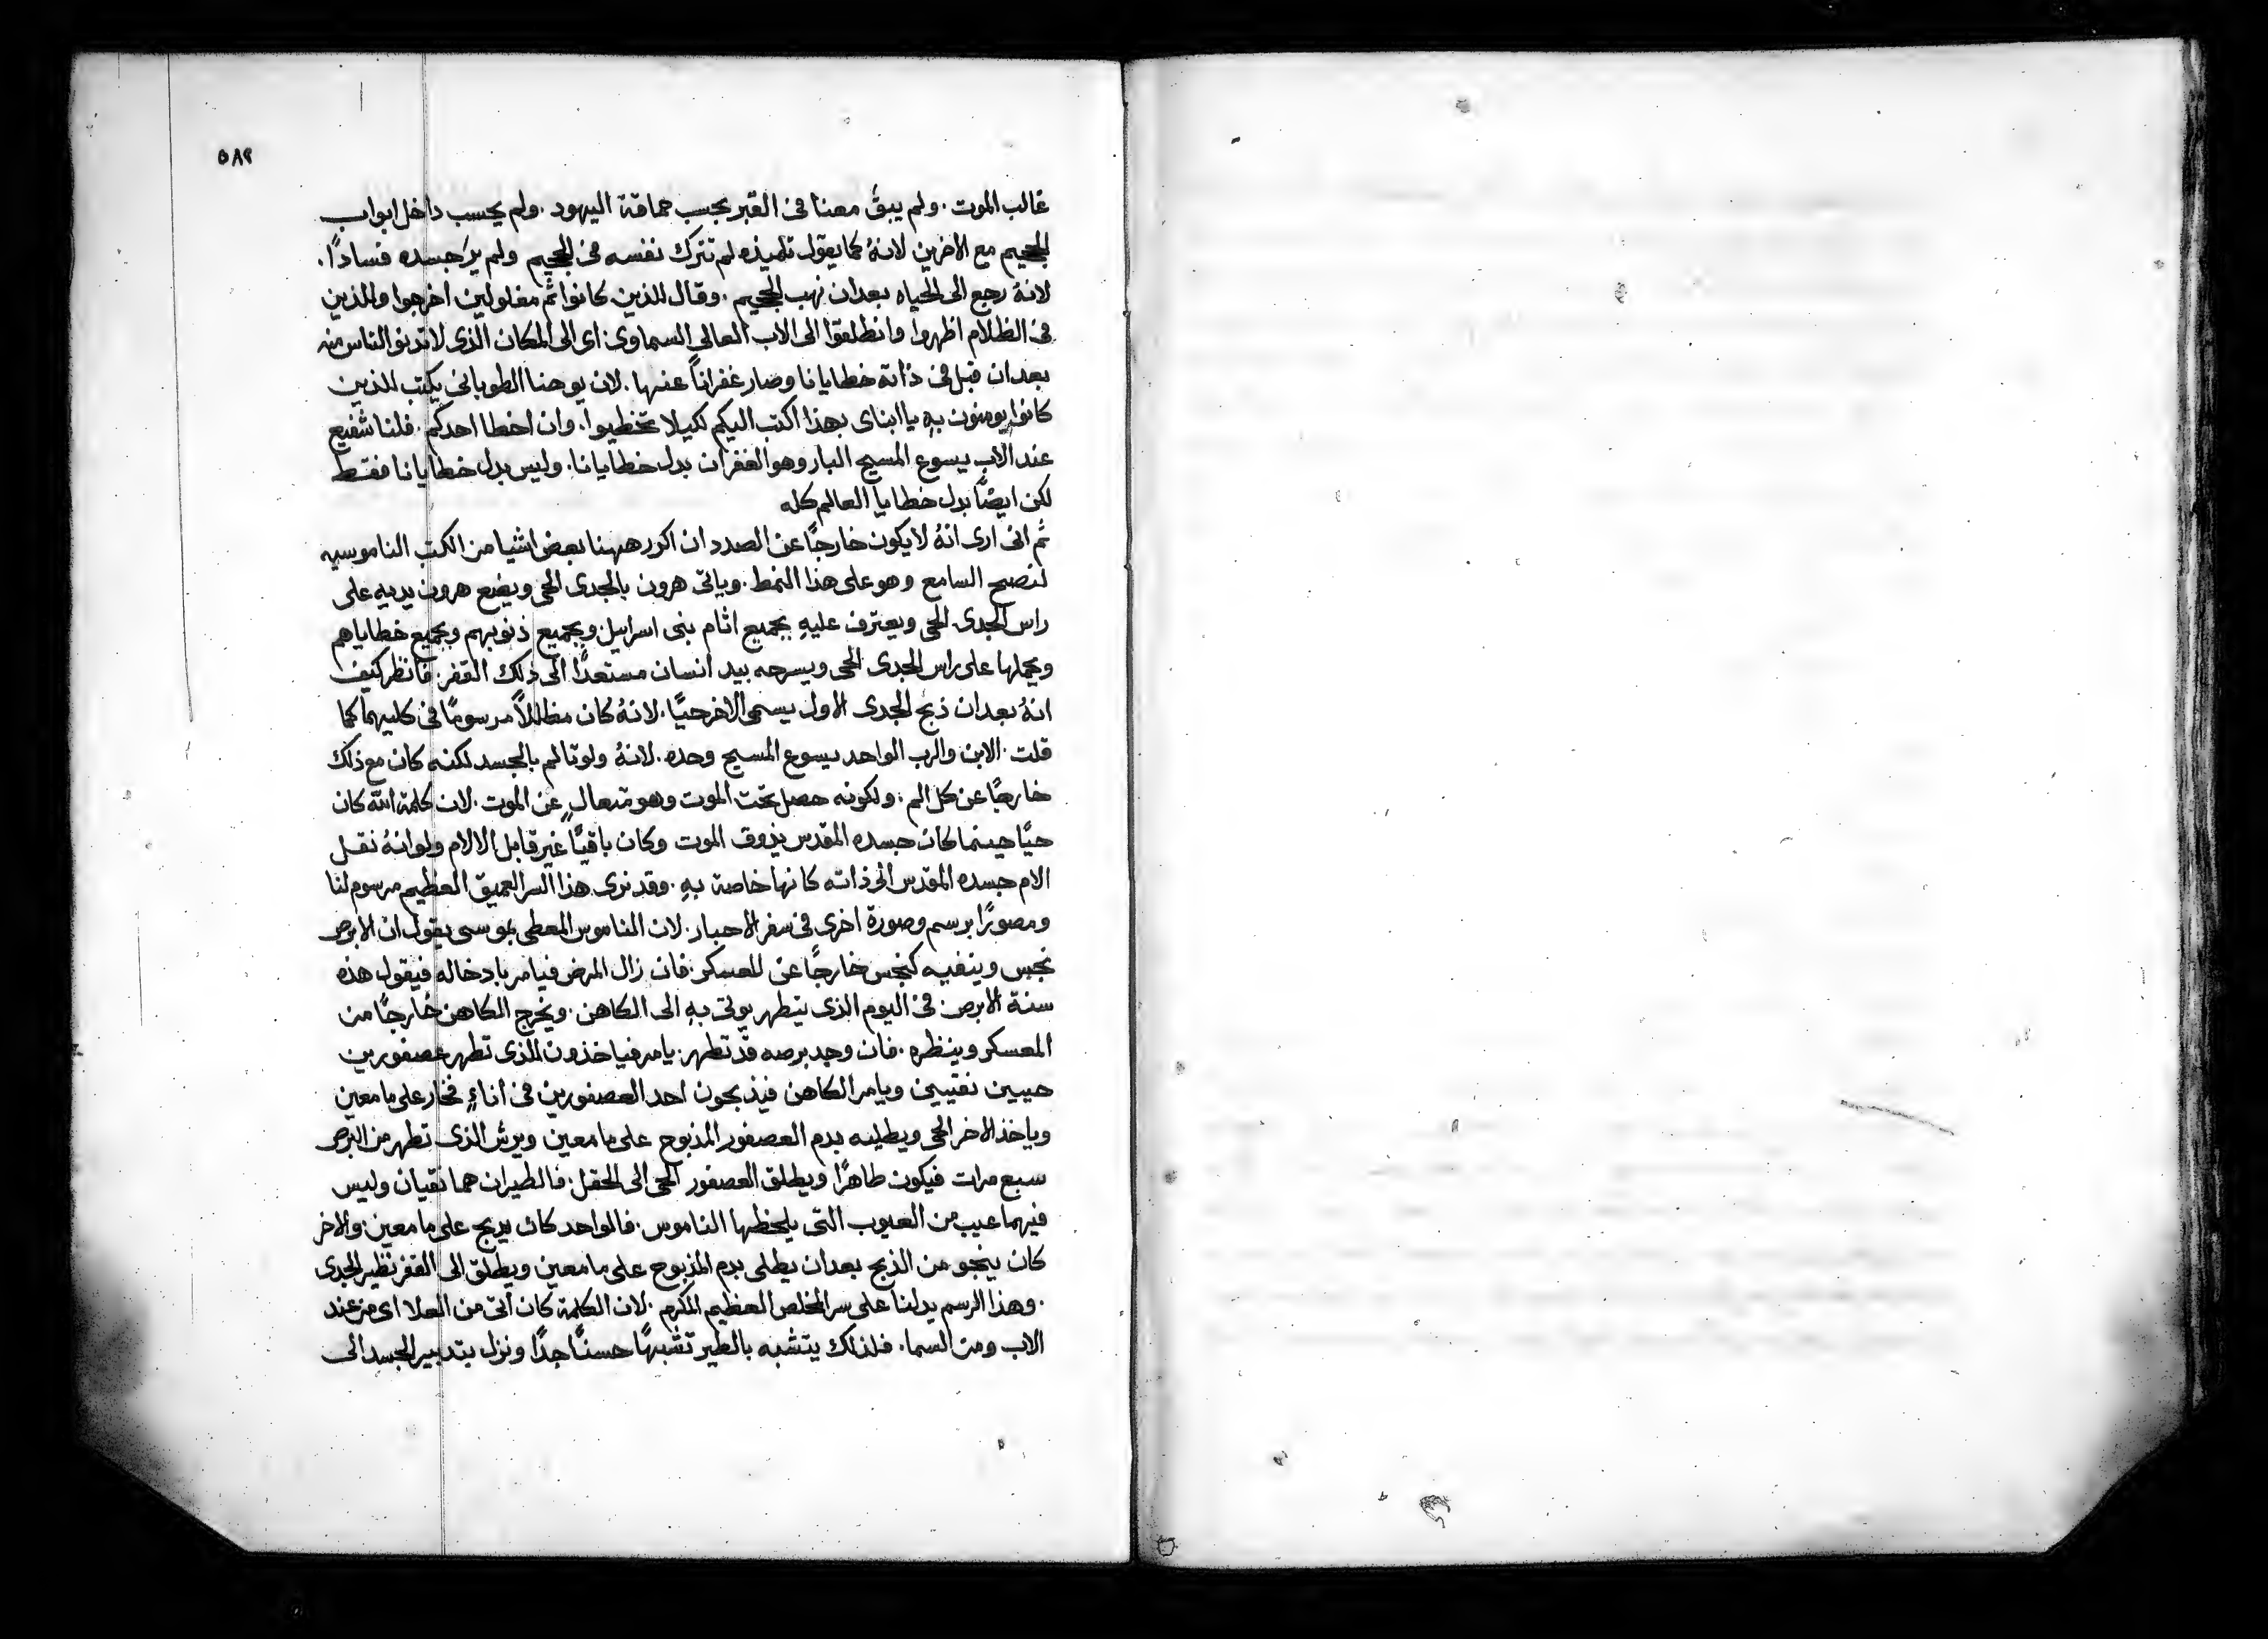 ٥٨٢
غالب الموت . ولم يبقَ معنا فى القبر بحسب حماقة اليهود . ولم يحسب داخل ابواب
الجحيم مع الاخرين لانهُ كما يقول تلميذه لم تترك نفسه فى الجحيم ولم يرَ جسده فسادًا .
لانهُ رجع الى الحياه بعد ان نهب الجحيم . وقال للذين كانوا ثم مغلولين اخرجوا وللذين
فى الظلام اظهروا وانطلقوا الى الاب العالى السماوى اى الى المكان الذى لا تدنوا الناس منه
بعد ان قبل فى ذاته خطايانا وصار غفرانًا عنها . لان يوحنا الطوبانى يكتب للذين
كانوا يومنون بهِ يا ابناى بهذا اكتب اليكم لكيلا تخطيوا . وان اخطا احدكم . فلنا شفيع
عند الاب يسوع المسيح البار وهو الغفران بدل خطايانا . وليس بدل خطايانا فقط
لكن ايضًا بدل خطايا العالم كله
ثم انى ارى انهُ لا يكون خارجًا عن الصدد ان اكرر ههنا بعض اشيا من الكتب الناموسيه
لنصح السامع وهو على هذا النمط . وياتى هرون بالجدى الحى ويضع هرون يديه على
راس الجدى الحى ويعترف عليهِ بجميع اثام بنى اسراييل وبجميع ذنوبهم وبجميع خطاياهم
ويجملها على راس الجدى الحى ويسرحه بيد انسان مستعدًا الى ذلك القفر . فانظر كيف
انهُ بعد ان ذبح الجدى الاول يسمى الاخر حيًا . لانهُ كان مظللاً مرسومًا فى كليهما كما
قلت . الابن والرب الواحد يسوع المسيح وحده . لانهُ ولو تالم بالجسد لكنه كان مع ذلك
خارجًا عن كل الم . ولكونه حصل تحت الموت وهو متعالٍ عن الموت . لان كلمة الله كان
حيًا حينما كان جسده المقدس يذوق الموت وكان باقيًا غير قابل الالام ولو انهُ نقل
الام جسده المقدس الى ذاته كانها خاصة بهِ . وقد نرى هذا السر العميق العظيم مرسوم لنا
ومصورًا برسم وصورة اخرى فى سفر الاحبار . لان الناموس المعطى لموسى يقول ان الابرص
نجس وينفيه كنجس خارجًا عن للعسكر . فان زال المرض فيامر بادخاله فيقول هذه
سنة الابرص فى اليوم الذى يتطهر يوتى بهِ الى الكاهن . ويخرج الكاهن خارجًا من
المعسكر وينظره . فان وجد برصه قد تطهر . يامر فياخذون للذى تطهر عصفورين
حيين نقيين ويامر الكاهن فيذبحون احد العصفورين فى اناءٍ فخار على ما معين
وياخذ الاخر الحى ويطليه بدم العصفور المذبوح على ما معين ويرش الذى تطهر من البرص
سبع مرات فيكون طاهرًا ويطلق العصفور الحى الى الحقل . فالطيران هما نقيان وليس
فيهما عيب من العيوب التى يلحظها الناموس . فالواحد كان يذبح على ما معين . والاخر
كان ينجو من الذبح بعد ان يطلى بدم المذبوح على ما معين ويطلق الى القفر نظير الجدى
. وهذا الرسم يدلنا على سر المخلص العظيم المكرم . لان الكلمة كان أتى من العلا اى من عند
الاب ومن السما . فلذلك يتشبه بالطير تشبهًا حسنًا جدًا ونزل بتدبير الجسد الى